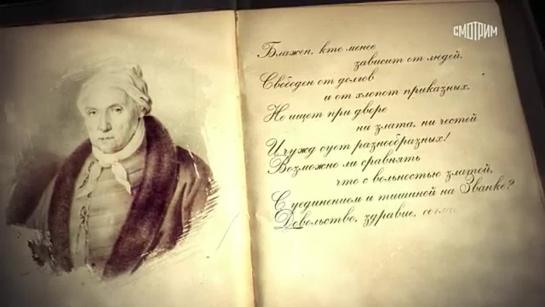 СМОТРИМ
Блажен, кто менее
зависит от людей,
Свободен от долгов
и от хлопот приказных,
Не ищет при дворе
ни злата, ни честей
И чужд сует разнообразных!
Возможно ли сравнять
что с вольностью златой,
С уединением и тишиной на Званке?
Довольство, здравие, согла